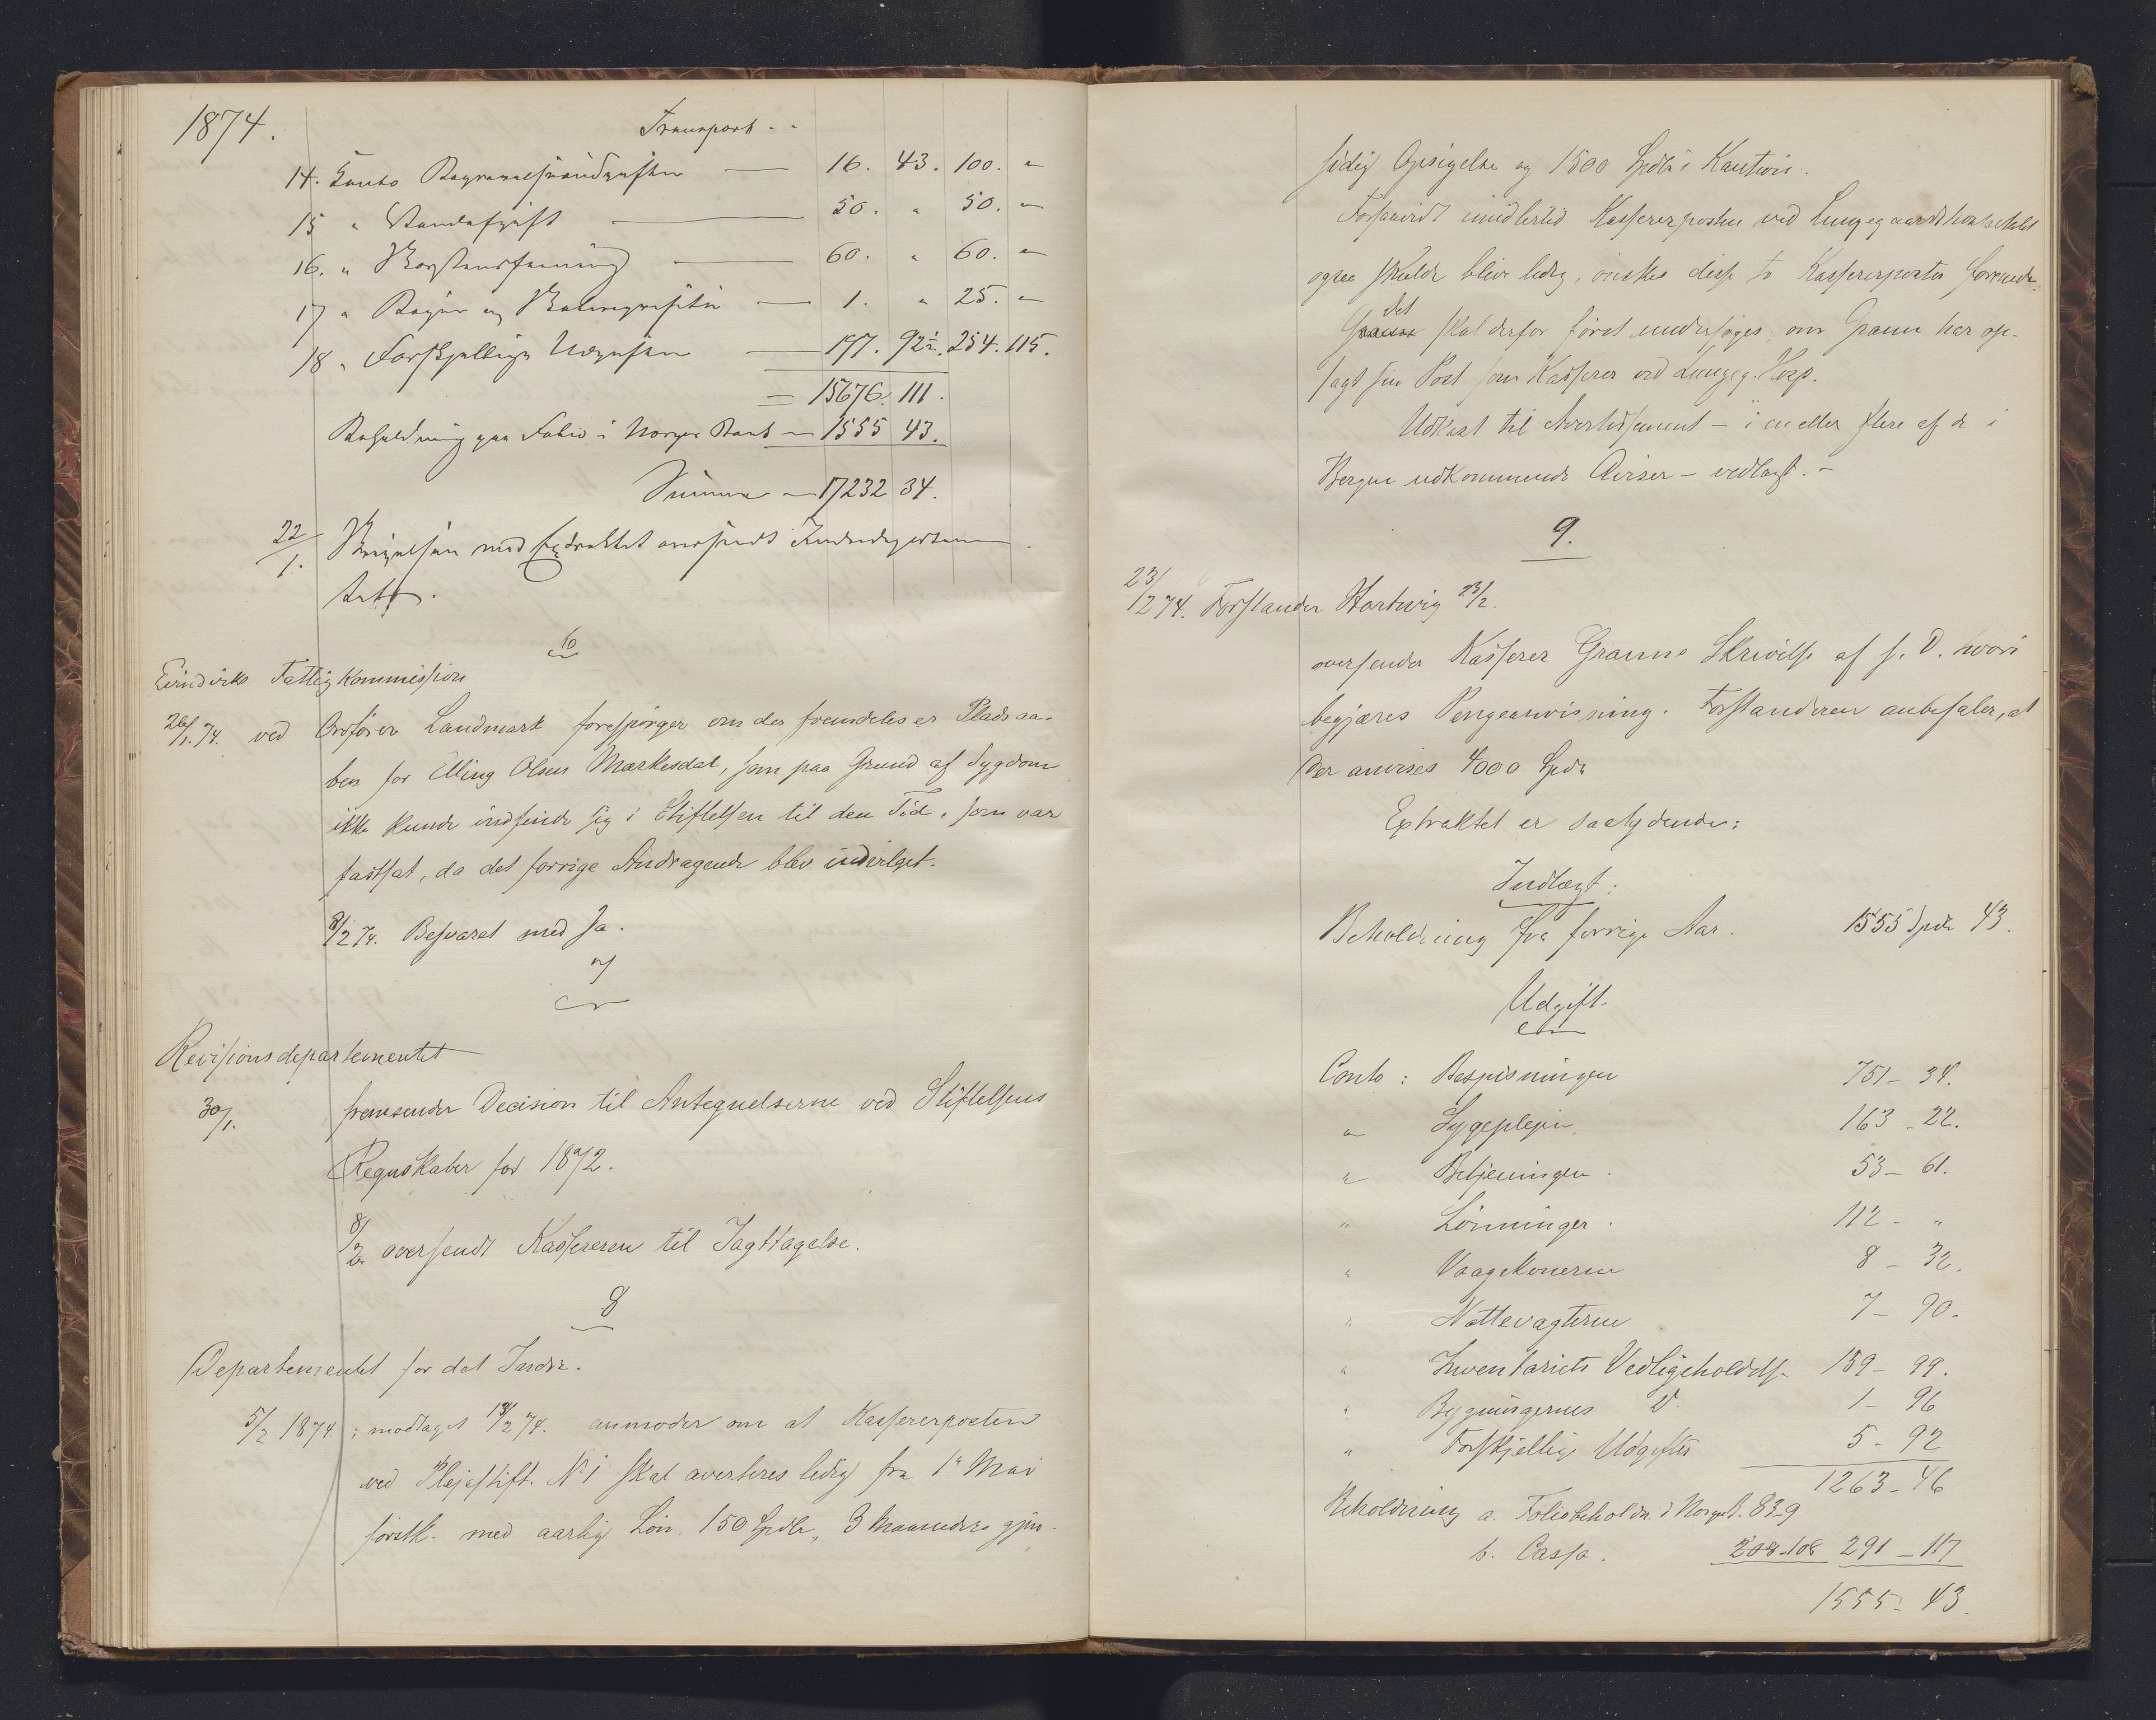 1874.
Transport . .
14. Conto Begravelsesudgifter — 16. 43. 100. "
15 " Vandafgift — 50. " 50. "
16. " Skorstensfeining — 60. " 60. "
17 " Bøger og — 1. " 25. "
18 " Forskjellige Udgifter — 197. 92½. 254. 115.
= 15676. 111.
Beholdning paa Folio i Norges Bank — 1555 43.
Summa — 17232 34.
22/1. Skrivelsen med Extraktet oversendt Indredepartemen
tet.
6
Evindviks Fattigkommission
26/1. 74. ved Ordfører Landmark forespørger om der fremdeles er Plads aa-
ben for Elling Olsen Markesdal, som paa Grund af Sygdom
ikke kunde indfinde sig i Stiftelsen til den Tid, som var
fastsat, da det forrige Andragende blev indvilget.
8/2 74. Besvaret med Ja.
7
Revisionsdepartementet
30/1. fremsender Decision til Antegnelserne ved Stiftelsens
Regnskaber for 1872.
8/2 oversendt Kassereren til Iagttagelse.
8
Departementet for det Indre.
5/2 1874; modtaget 13/2 74. anmoder om at Kassererposten
ved Plejestift. No 1 skal averteres ledig fra 1ste Mai
førstk. med aarlig Løn 150 Spdlr, 3 Maaneders gjen-
sidig Opsigelse og 1500 Spdlr i Kaution.
Forsaavidt imidlertid Kassererposten ved Lungegaardshospitalet
ogsaa skulde blive ledig, ønskes disse to Kassererposter forenede.
det
Graune skal derfor først undersøges, om Grann har op-
sagt sin Post som Kasserer ved Lungeg. Hosp.
Udkast til Avertissement – i en eller flere af de i
Bergen udkommende Aviser – vedlagt. –
9.
23/2 74. Forstander Hartwig 23/2.
oversender Kasserer Granns Skrivelse af s. D. hvori
begjæres Pengeanvisning. Forstanderen anbefaler, at
der anvises 4000 Spdr
Extraktet er saalydende:
Indtægt:
Beholdning fra forrige Aar. 1555 Spdr 43.
Udgift.
Conto : Bespisningen 751 – 34.
" Sygeplejen 163 – 22.
" Betjeningen . 53 – 61.
" Lønninger . 112 – "
" Vaagekonerne 8 – 32.
" Nattevagterne 7 – 90.
" Inventariets Vedligeholdelse 159 – 99.
" Bygningernes D 1 – 96
" Forskjellige Udgifter 5 – 92
1263 – 46
Beholdning a. Foliobeholdn. i Norges B. 83.9
b. Cassa. 208–108 291 – 117
1555 – 43.